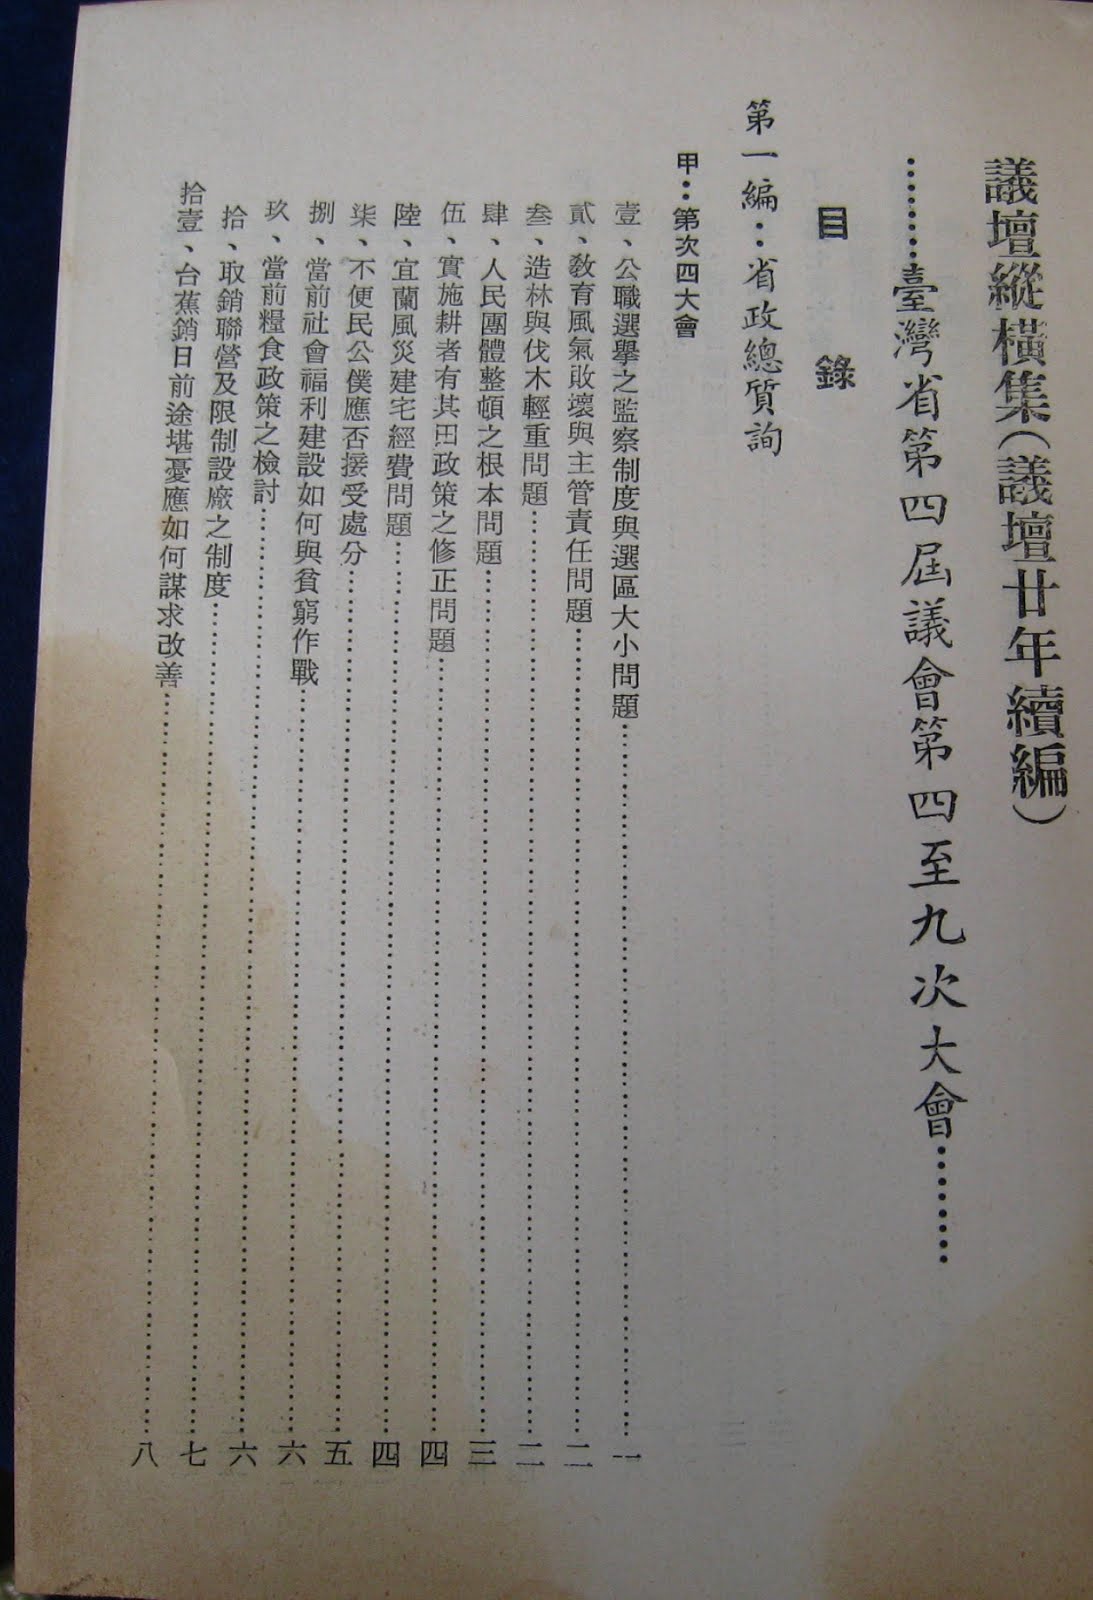 議壇縱橫集（議壇廿年續編）
………臺灣省第四屆議會第四至九次大會………
目錄
第一編：省政總質詢
甲：第次四大會
壹、公職選舉之監察制度與選區大小問題……一
貳、教育風氣敗壞與主管責任問題……二
叁、造林與伐木輕重問題……二
肆、人民團體整頓之根本問題……三
伍、實施耕者有其田政策之修正問題……四
陸、宜蘭風災建宅經費問題……四
柒、不便民公僕應否接受處分……五
捌、當前社會福利建設如何與貧窮作戰……六
玖、當前糧食政策之檢討……六
拾、取銷聯營及限制設廠之制度……七
拾壹、台蕉銷日前途堪憂應如何謀求改善……八